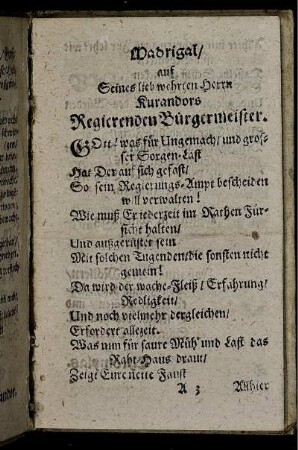 Madrigal/
auf
Seines lieb wehrten Herrn
Kurandors
Regierenden Bürgermeister.
GOtt! was für Ungemach/ und gros-
ser Sorgen-Last
Hat Der auf sich gefast/
So sein Regierungs-Ampt bescheiden
will verwalten!
Wie muß Er iederzeit im Rathen Für-
sicht halten/
Und außgerüstet sein
Mit solchen Tugenden/die sonsten nicht
gemein!
Da wird der wache-Fleiß/ Erfahrung/
Redligkeit/
Und noch vielmehr dergleichen/
Erfordert allezeit.
Was nun für saure Müh' und Last das
Raht-Haus draut/
Zeigt Eure nette Faust
A 3 Allhier